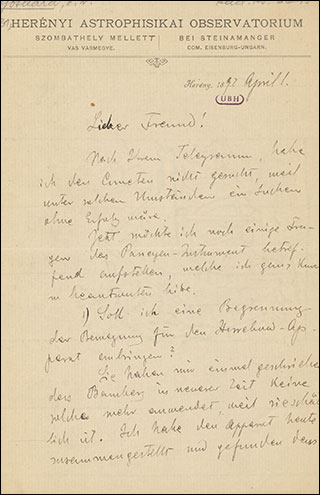 HERÉNYI ASTROPHISIKAI OBSERVATORIUM
SZOMBATHELY MELLETT
BEI STEINAMANGER
VAS VÁRMEGYE.
COM. EISENBURG-UNGARN.
Herény, 189 April 1.
UBH
Lieber Freund!
Nach Ihrem Telegramm, habe
ich den Cometen nicht gesucht, weil
unter solchen Umständen ein Suchen
ohne Erfolg wäre.
Jetzt möchte ich noch einige Fra-
gen das Passagen-Instrument betref-
fend aufstellen, welche ich ganz kurz
zu beantworten bitte.
1) Soll ich eine Begrenzung
der Bewegung für den Ap-
parat anbringen?
Sie haben mir einmal geschrieben
dass Bamberg in neuerer Zeit keine
solche mehr anwendet, weil sie schäd-
lich ist. Ich habe den Apparat heute
zusammengestellt und gefunden dass